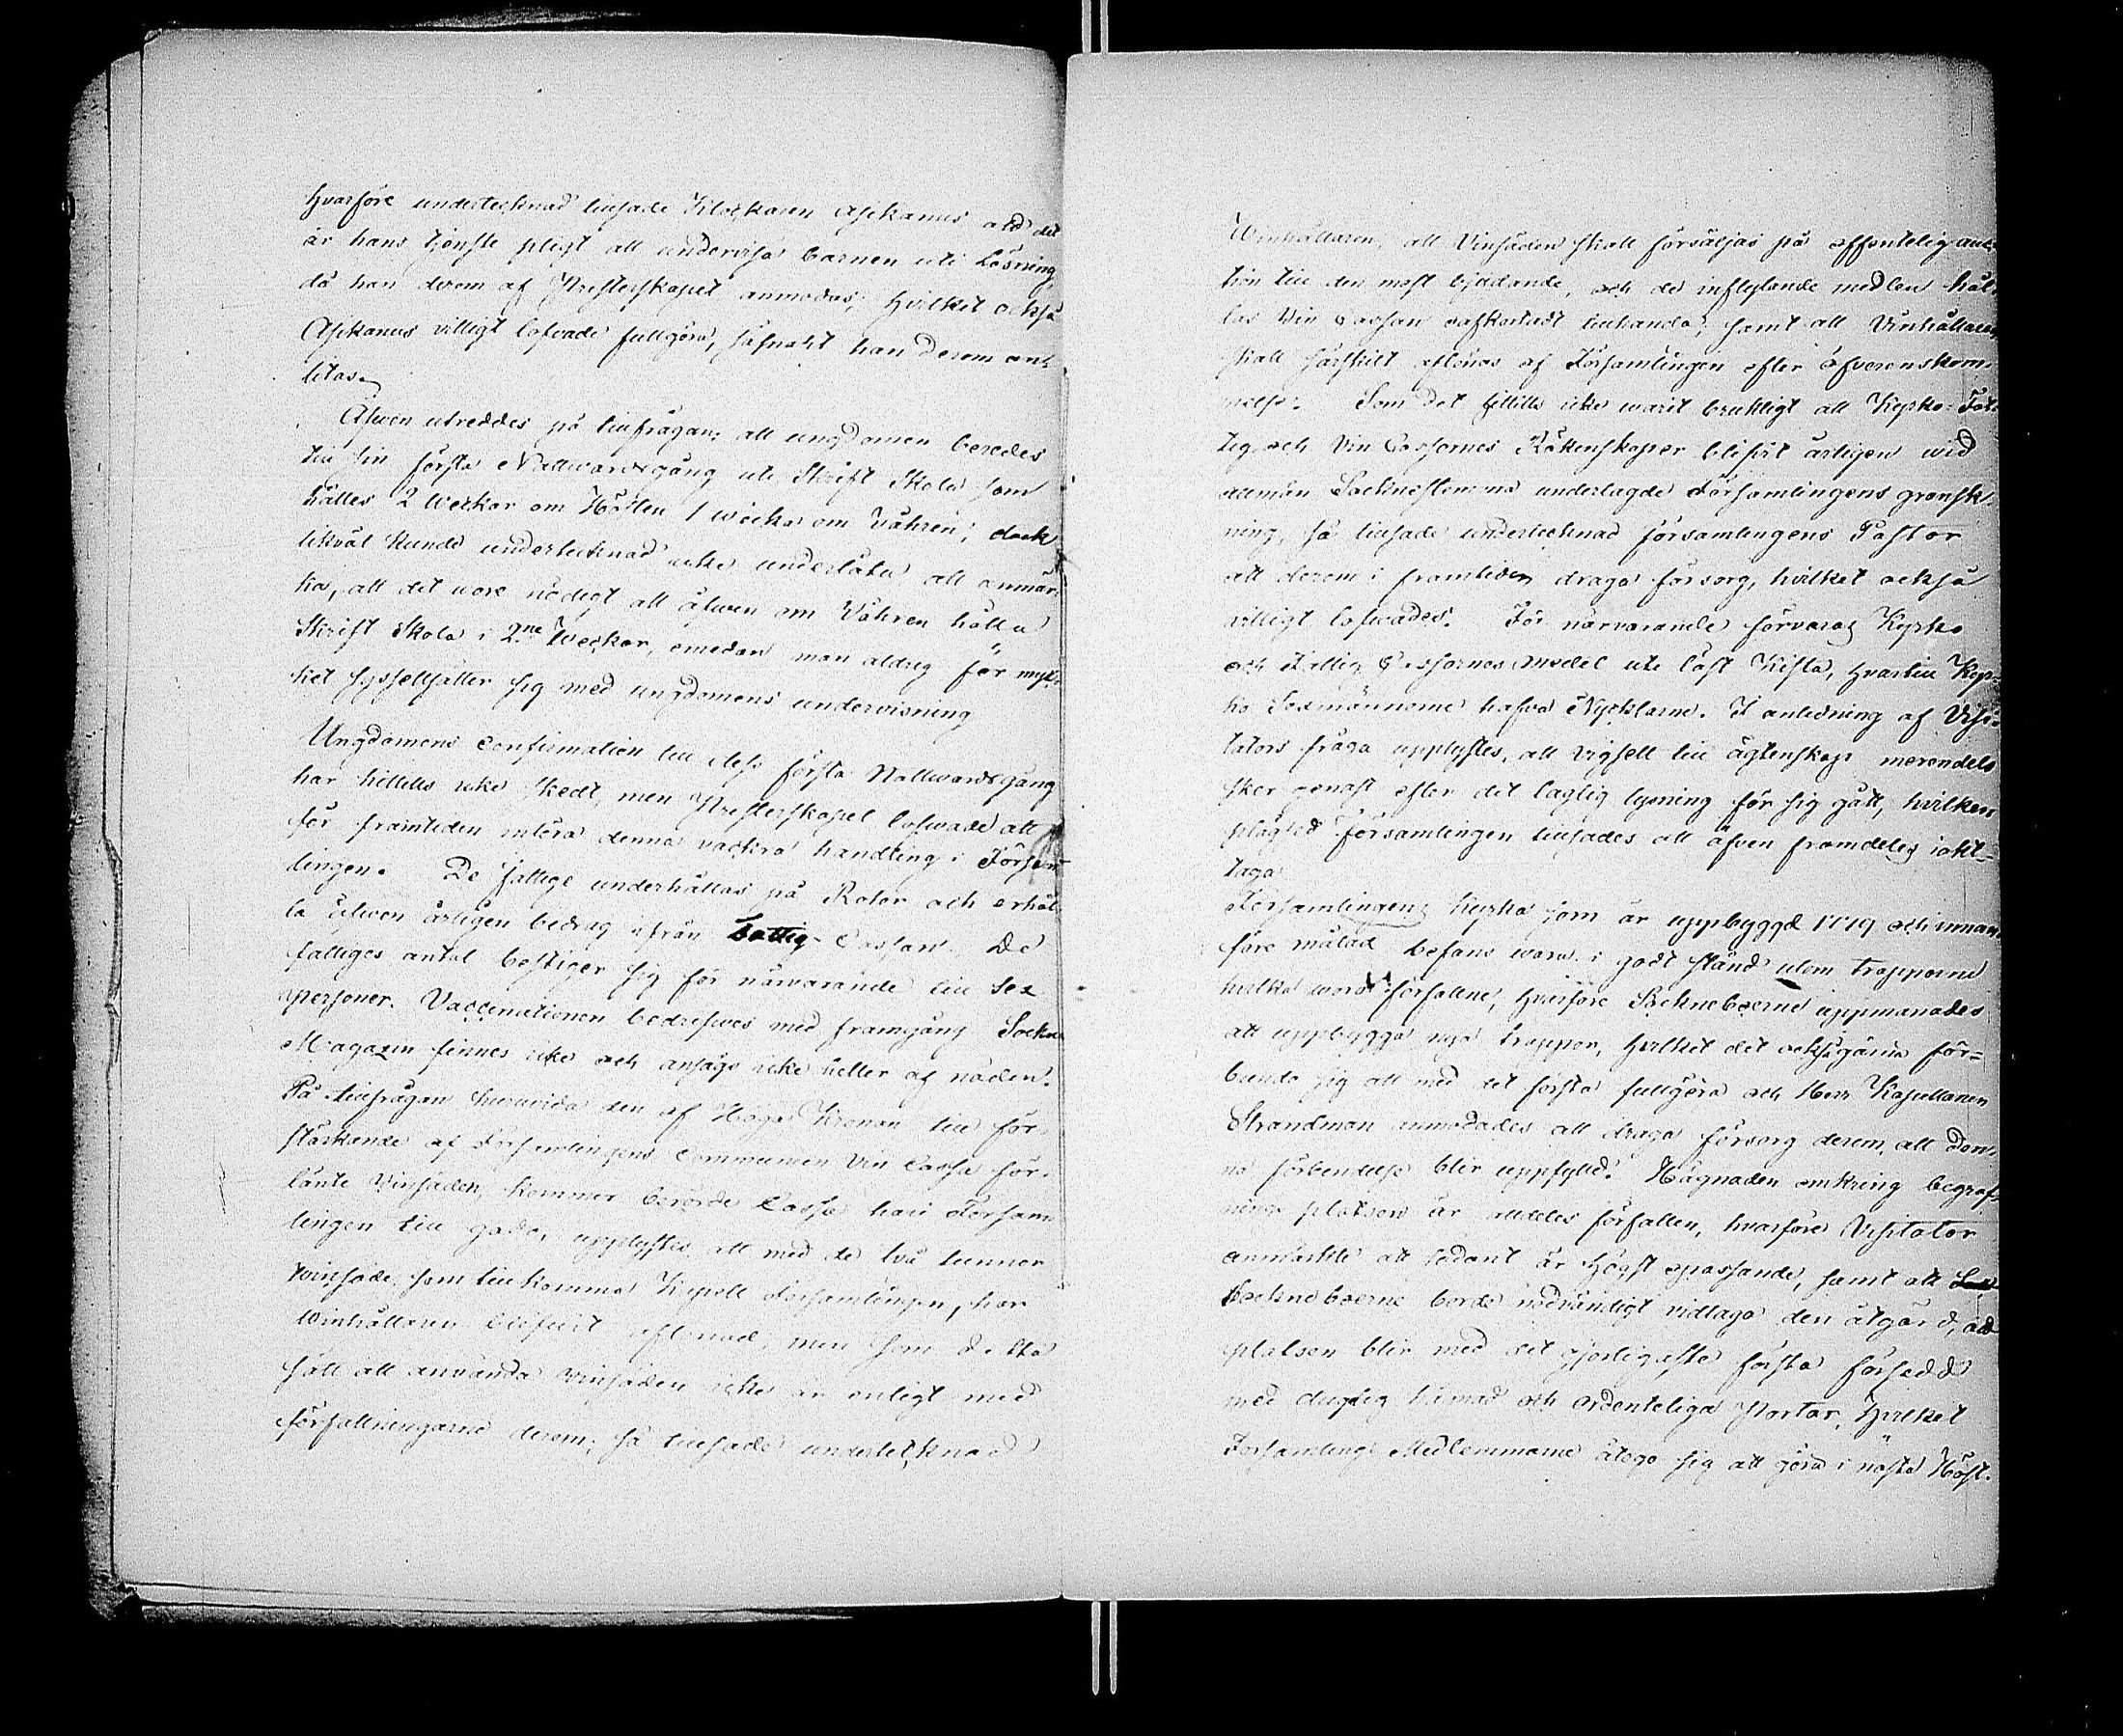 Hvarföre undertecknad tillsade Klockaren Asikanus att det
är hans tjenste pligt att undervisa barnen uti Läsning
då han derom af Presterskapet anmodas; Hvilket också
Asikanus villigt lofvade fullgöra, såsnart han derom an-
litas.
Äfwen utreddes på tillfrågan, att ungdomen beredes
till sin första Nattwardsgång uti Skrift Skola som
hålles 2 Weckor om Hösten 1 wecka om Våhren; dock
likväl kunde undertecknad icke underlåta att anmär-
ka, att det wore nödigt att äfwen om Våhren hålla
Skrift Skola i 2ne Weckor, emedan man aldrig för myc-
ket sysselsätter sig med ungdomens undervisning
Ungdomens Confirmation till dess första Nattwardsgång
har hittills icke skedt, men Presterskapet lofwade att
för framtiden införa denna vackra handling i Försam-
lingen. De fattige underhållas på Rotor och erhål-
la äfwen årligen bidrag ifrån Fattig-Cassan. De
fattiges antal bestiger sig för närvarande till sex
personer. Vaccinationen bedrifwes med framgång Sockne
Magazin finnes icke och ansågs icke heller af nöden.
På tillfrågan huruvida den af Höga Kronan till för-
stärkande af Församlingens Communion Vin Cassa för-
länte Vinsäden, kommer berörde Cassa häri Försam-
lingen till godo, upplystes att med de två tunnor
winsäde som tillkomma Kapell Församlingen, har
Winhållaren blifwit aflönad, men som detta
sätt att använda vinsäden icke är enligt med
författningarne derom, så tillsade undertecknad
Winhållaren, att Vinsäden skall försäljas på offentelig auc-
tion till den mest bjudande, och de inflytande medlen hål-
las Vin Cassan oafkortadt tillhanda; samt att Vinhållaren
skall särskilt aflönas af Församlingen efter öfverenskom-
melse. Som det hittills icke warit brukligt att Kyrko- Fat-
tig och Vin Cassornes Räkenskaper blifvit årligen wid
allmän Sockenstemma underlagde Församlingens gransk-
ning, så tillsade undertecknad församlingens Pastor
att derom i framtiden draga försorg, hvilket också
villigt lofwades. För närvarande förvaras Kyrko
och Fattig Cassornas medel uti låst Kista, Hvartill Kyr-
ko Sexmännerne hafva Nycklarne. I anledning af Visi-
tators fråga upplystes, att vigsell till ägtenskap merendels
sker genast efter det laglig lysning för sig gått, hvilken
plägsed Församlingen tillsades att äfven framdeles iakt-
taga
Församlingens Kyrka som är uppbyggd 1779 och innan-
före målad befans wara i godt stånd utom trapporna
hvilka woro förfallne, Hvarföre Sockneboerne uppmanades
att uppbygga nya trappor, Hvilket det också gärna för-
bundo sig att med det första fullgöra och Herr Kapellanen
Strandman anmodades att draga försorg derom, att den-
na förbindelse blir uppfylld. Hägnaden omkring begraf-
nings platsen är alldeles förfallen, hvarföre Visitator
anmärkte att sådant är Högst opassande, samt att
Sockneboerne borde nödvändigt vidtaga den åtgärd, att
platsen blir med det görligaste första försedd
med dugelig hägnad och Ordenteliga Portar, Hvilket
Församlings Medlemmarne åtogo sig att göra i nästa Höst.